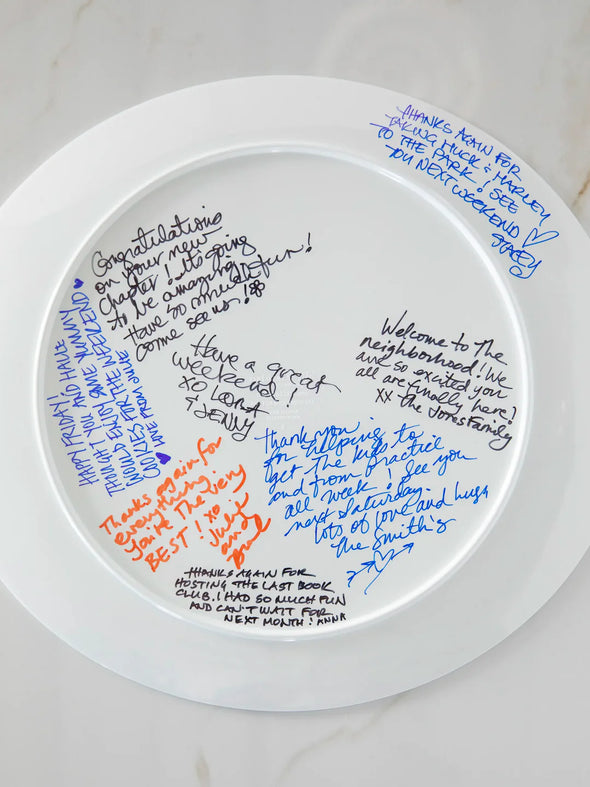 THANKS AGAIN FOR
TAKING HUCK & HARLEY
TO THE PARK! SEE
YOU NEXT WEEKEND ♡
STACEY
Congratulations
on your new
chapter! Its going
to be amazing!
Have so much fun!
come see us!
HAPPY FRIDAY!
THOUGHT YOU AND HALLIE
WOULD ENJOY SOME YUMMY
COOKIES FOR THE WEEKEND
LOVE FROM JULIE
Have a great
weekend!
XO LORA
& JENNY
Welcome to the
neighborhood! We
are so excited you
all are finally here!
XX The Jones Family
Thank you
for helping to
get the kids to
and from practice
all week! See you
next Saturday.
lots of love and hugs
The Smith's
Thanks again for
everything
You're The very
BEST! XO
Julie
and
THANKS AGAIN FOR
HOSTING THE LAST BOOK
CLUB. I HAD SO MUCH FUN
AND CAN'T WAIT FOR
NEXT MONTH! ANNA